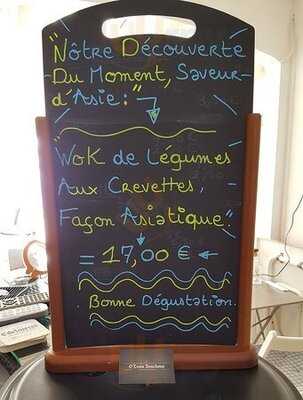 "Nôtre Découverte
Du Moment, Saveur
d'Asie:"
Wok de Légumes
Aux Crevettes,
Façon Asiatique".
= 17,00 €
Bonne Dégustation.